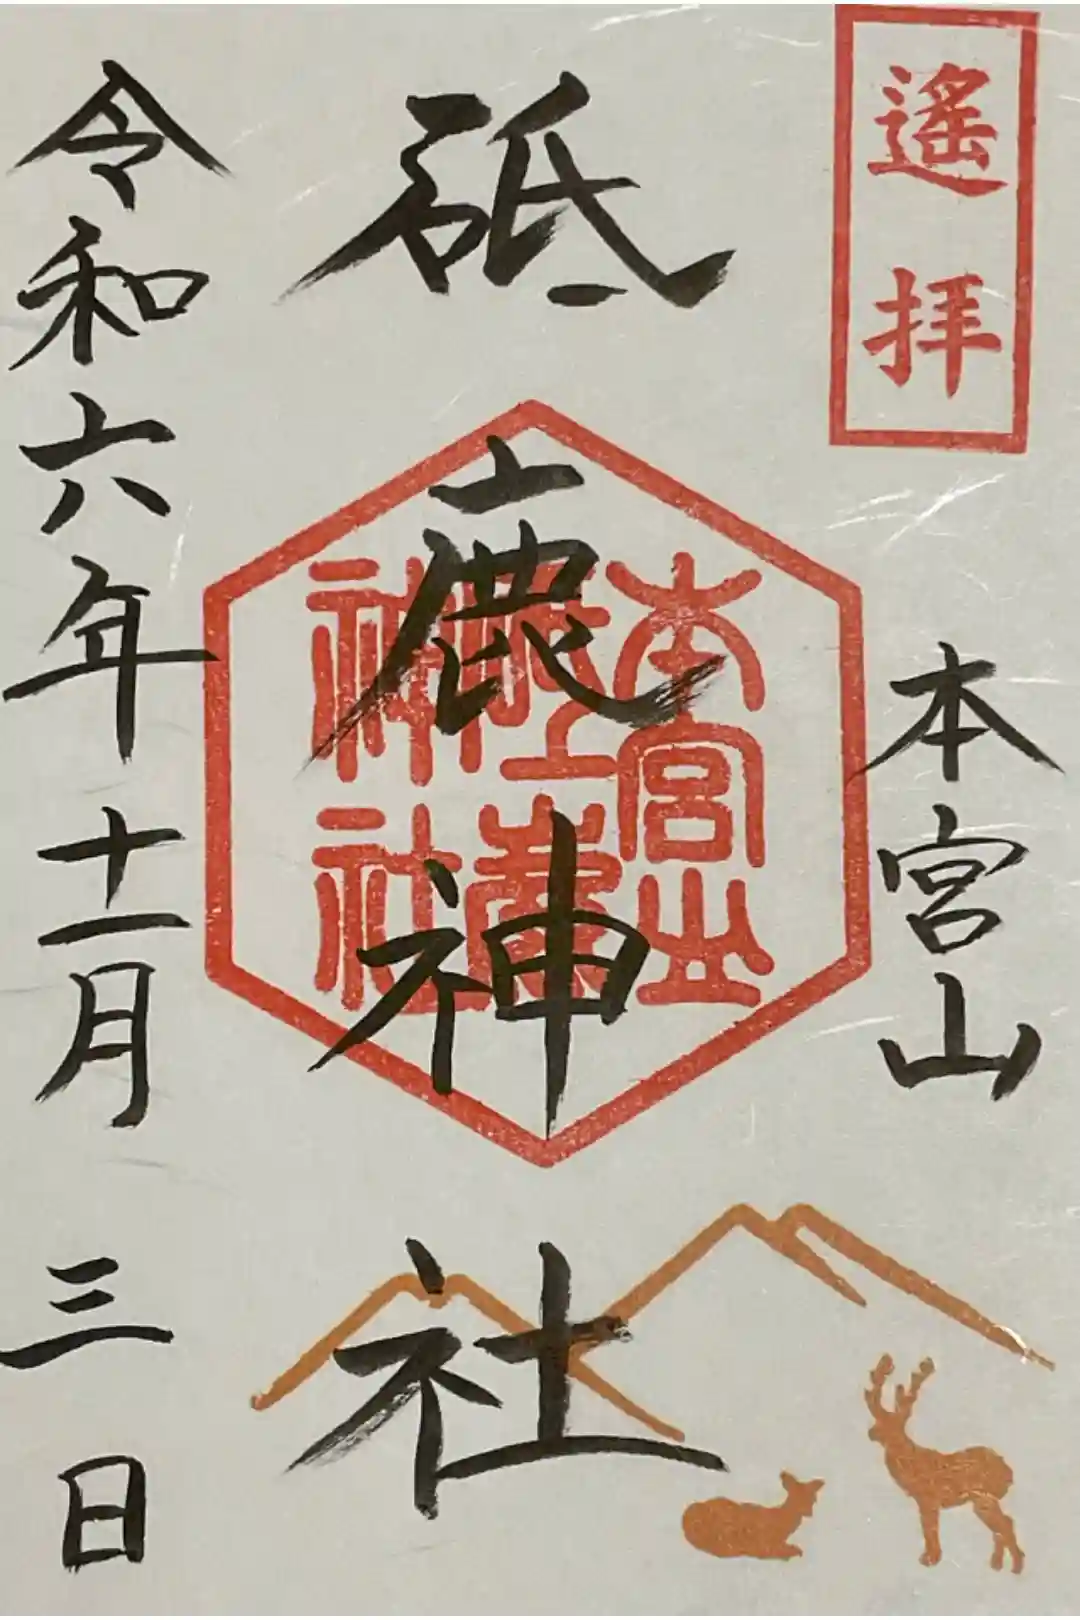 遙拝
本宮山
砥鹿神社
本宮山
砥鹿
神社
令和六年十一月三日